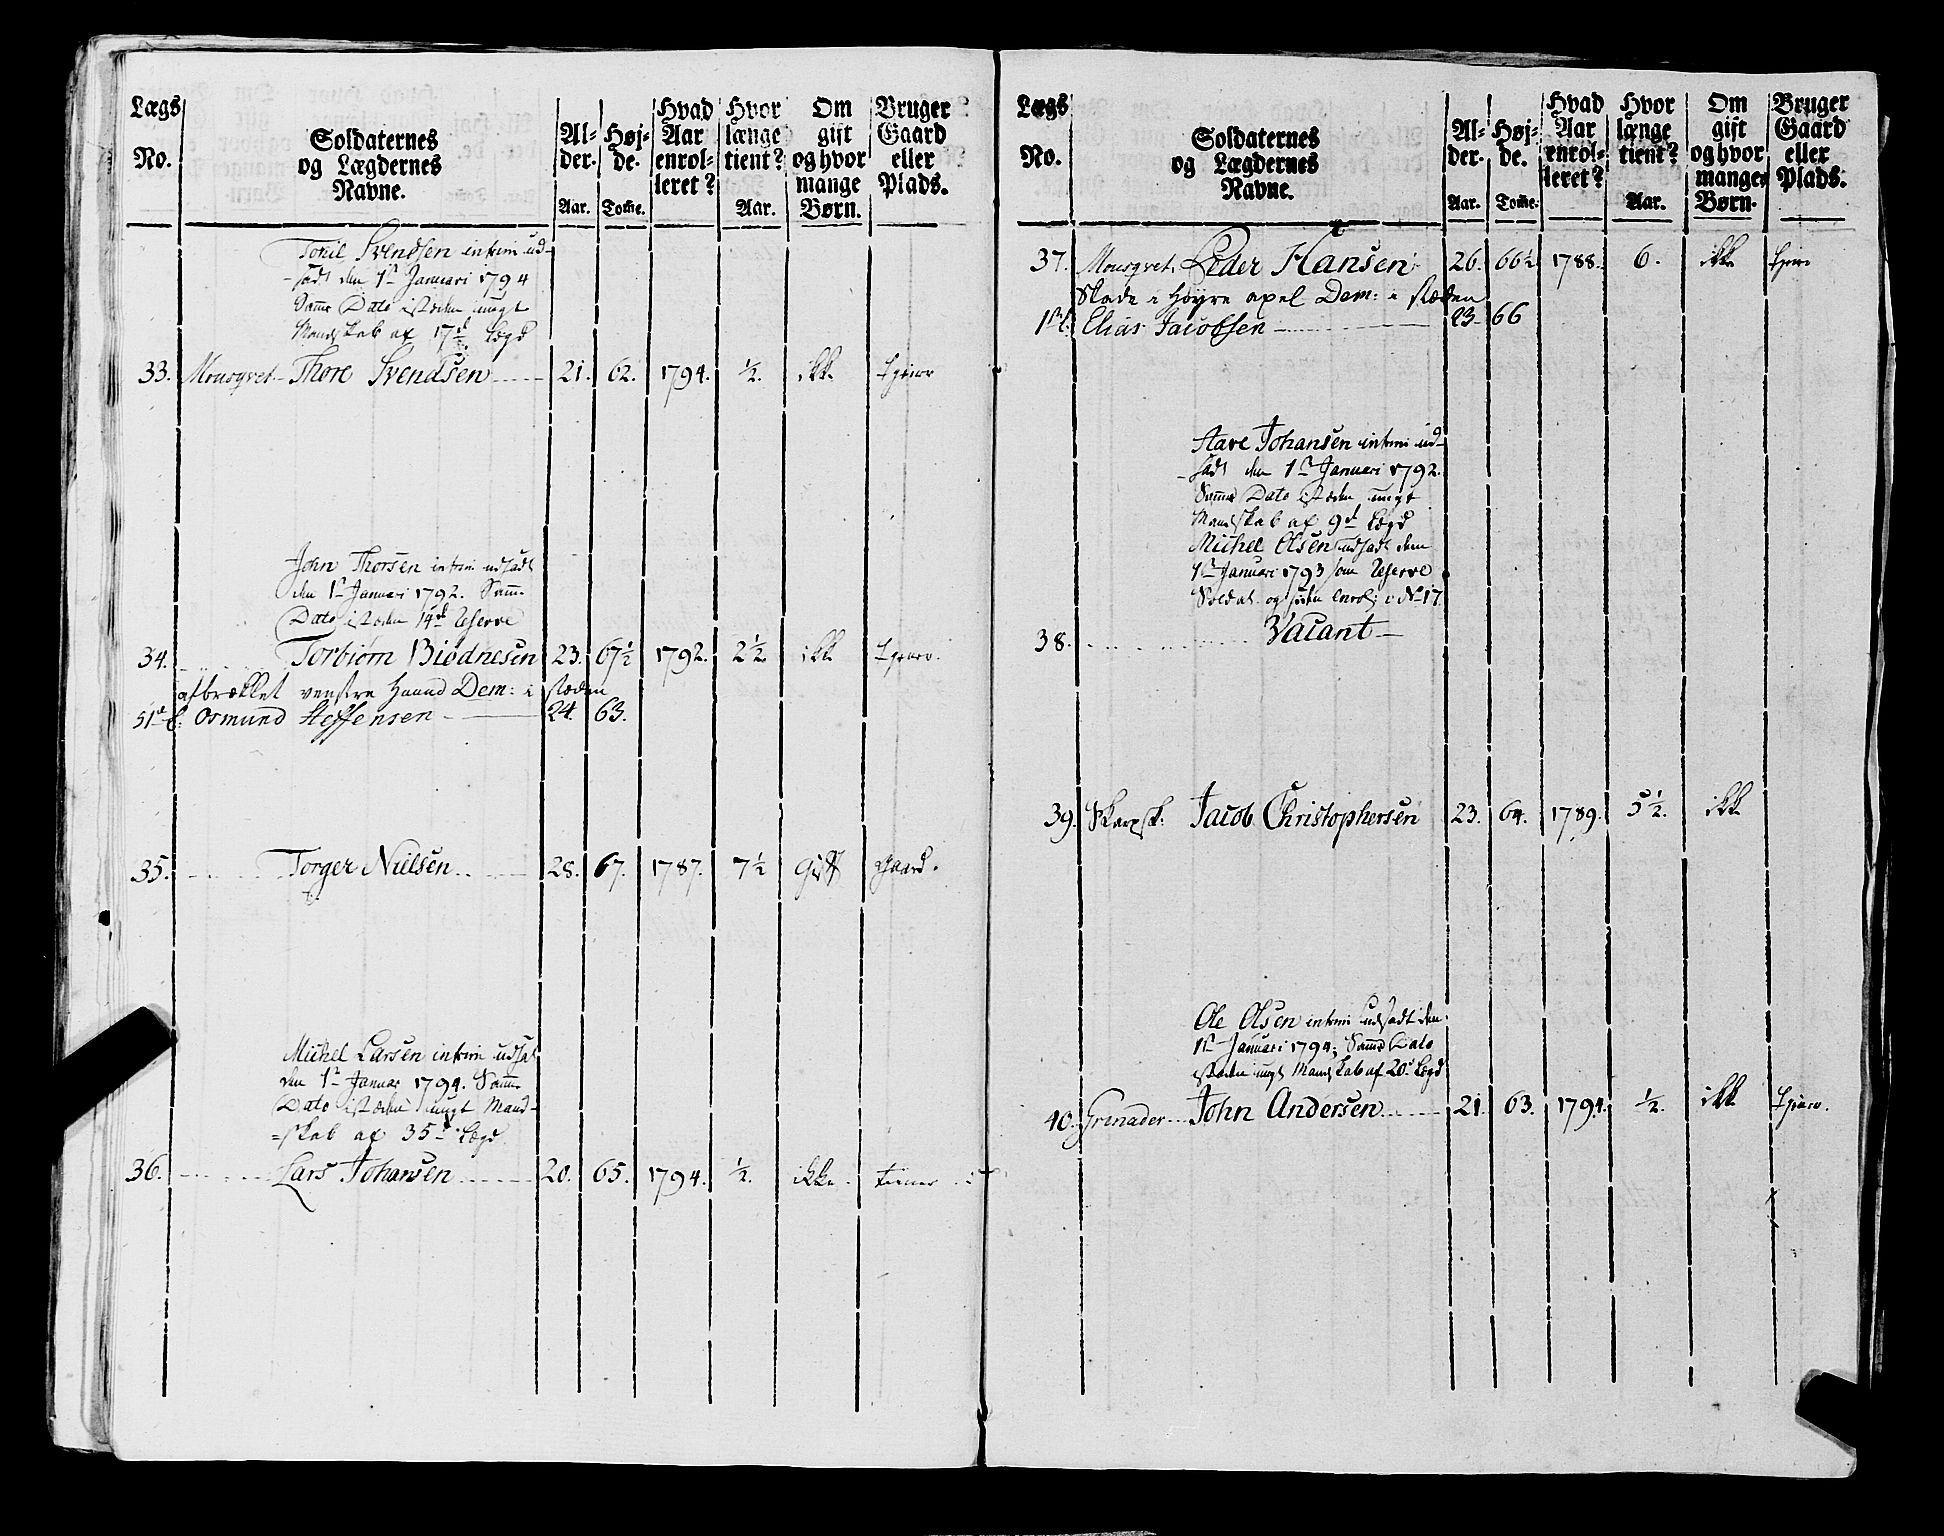 Lægs No. Soldaternes og Lægdernes Navne. Al-der. Aar. Høj-de. Tome. Hvad Aar enrol-leret? Hvor længe tient? Aar. Om gift og hvor mange Børn. Bruger Gaard eller Plads.
Svendsen interim ud-
-sadt den 1ſte Januari 1794
Samme Dato isteden ungt
Mandskab af 17de Lægd
33. Mousqvet Thore Svendsen 21. 62. 1794. ½. ikke tiener
John Thorsen interim udsadt
den 1ſte Januari 1792. Samme
Dato isteden 14de Reserve
34. Torbiørn Biødnesen 23. 67½ 1792. 2½. ikke tiener.
afbrækket venstre Haand Dem: i stæden
51de L: Osmund Steffensen 24. 63.
35. Torger Nielsen 28. 67. 1787. 7½ Gift Gaard.
Michel Larsen interim udsat
den 1ſte Januar 1794. Samme
Dato isteden ungt Mand-
=skab af 35de Lægd
36. Lars Johansen 20. 65. 1794. ½. ikke. tiener
Lægs No. Soldaternes og Lægdernes Navne. Al-der. Aar. Høj-de. Tome. Hvad Aar enrol-leret? Hvor længe tient? Aar. Om gift og hvor mange Børn. Bruger Gaard eller Plads.
37. Mousqvet. Peder Hansen 26. 66½ 1788. 6. ikke tiener
Skade i Høyre axel Dem: i stæden
Elias Jacobsen 23 66
Johansen interim ud-
-sadt den 1ſte Januari 1792.
Samme Dato isteden ungt
Mandskab af 9de Lægd
Michel Olsen udsadt den
1ſte Januari 1793 som Reserve
Soldat og siden enrol: i No 17.
38. Vacant
39. Skarpsk: Jacob Christophersen 23. 64. 1789. 5½. ikke
Ole Olsen interim udsadt den
1ſte Januari 1794; Samme Dato
isteden ungt Mandskab af 20de Lægd
40. Grenader John Andersen 21. 63. 1794. ½. ikke tiener.